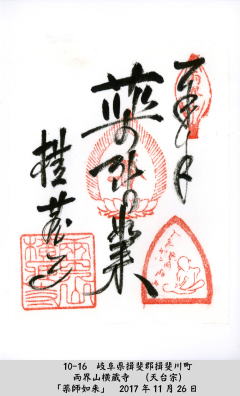 奉拝
薬師如来
横蔵寺
10-16　岐阜県揖斐郡揖斐川町
両界山横蔵寺　（天台宗）
「薬師如来」　2017年11月26日